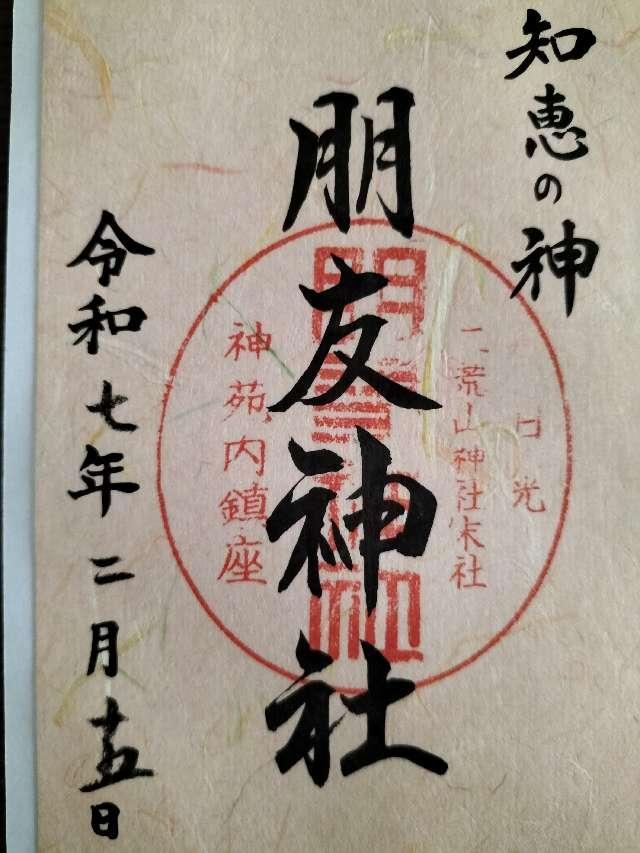 知恵の神
日光
二荒山神社末社
朋友神社
朋友神社
神苑内鎮座
令和七年二月十五日